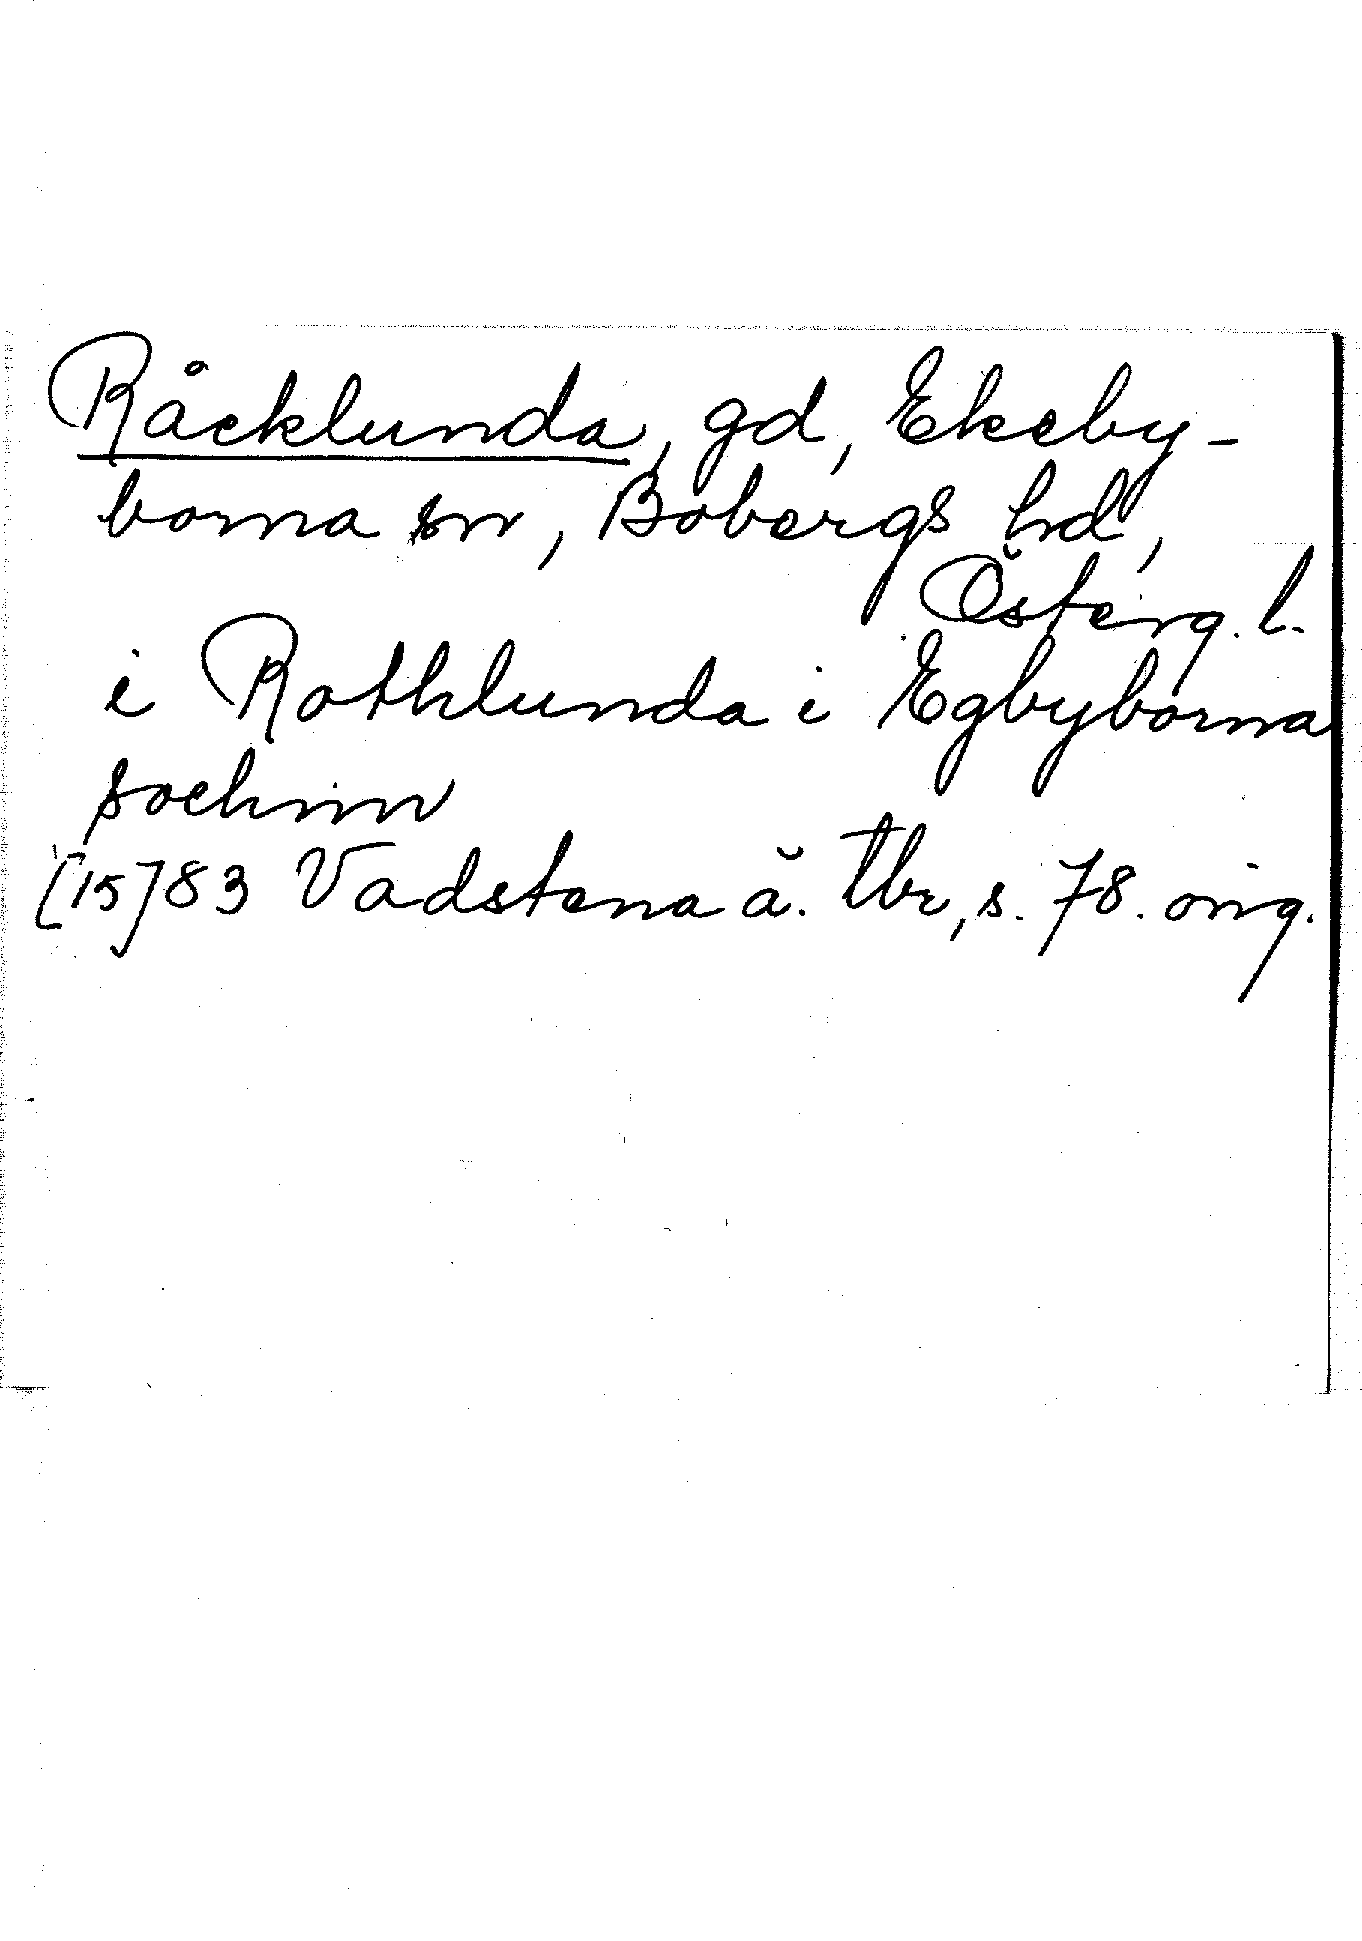 Råcklunda, gd, Ekeby-
borna sn, Bobergs hd,
Österg. l.
i Rothlunda i Egbyborna
sochnn
[15]83 Vadstena ä. tbr, s. 78. orig.